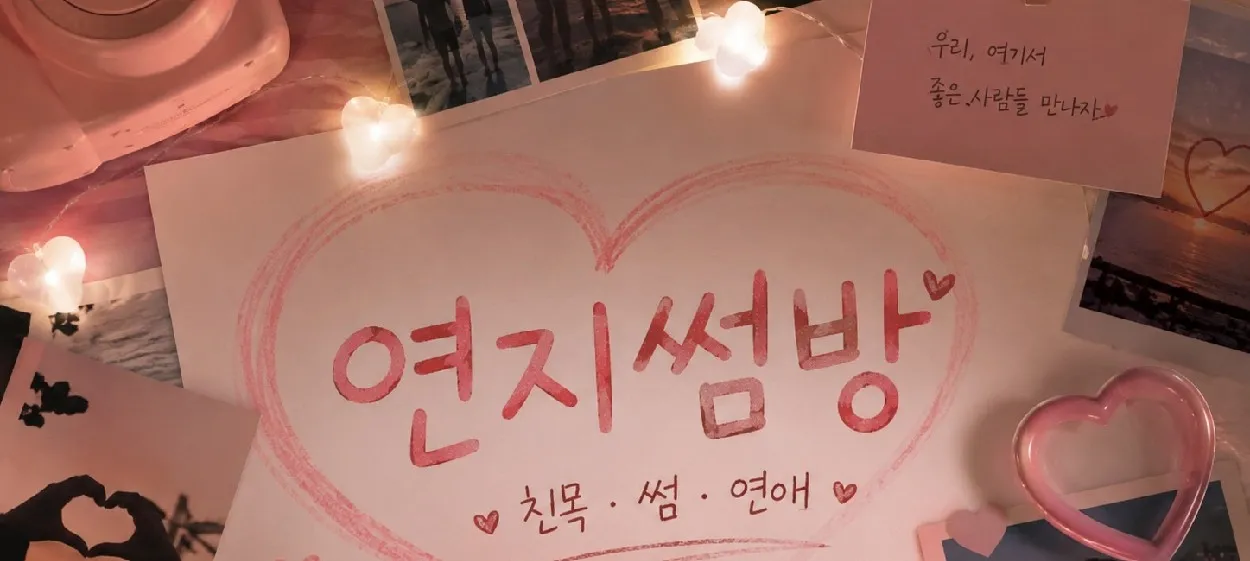 우리, 여기서
좋은 사람들 만나자
연지썸방
친목 · 썸 · 연애